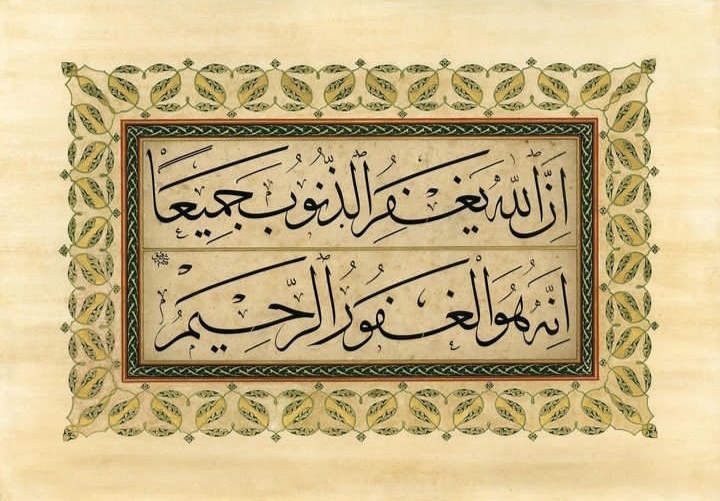 اِنَّ اللهَ يَغْفِرُ الذُّنُوبَ جَمِيعًا
اِنَّهُ هُوَ الْغَفُورُ الرَّحِيمُ